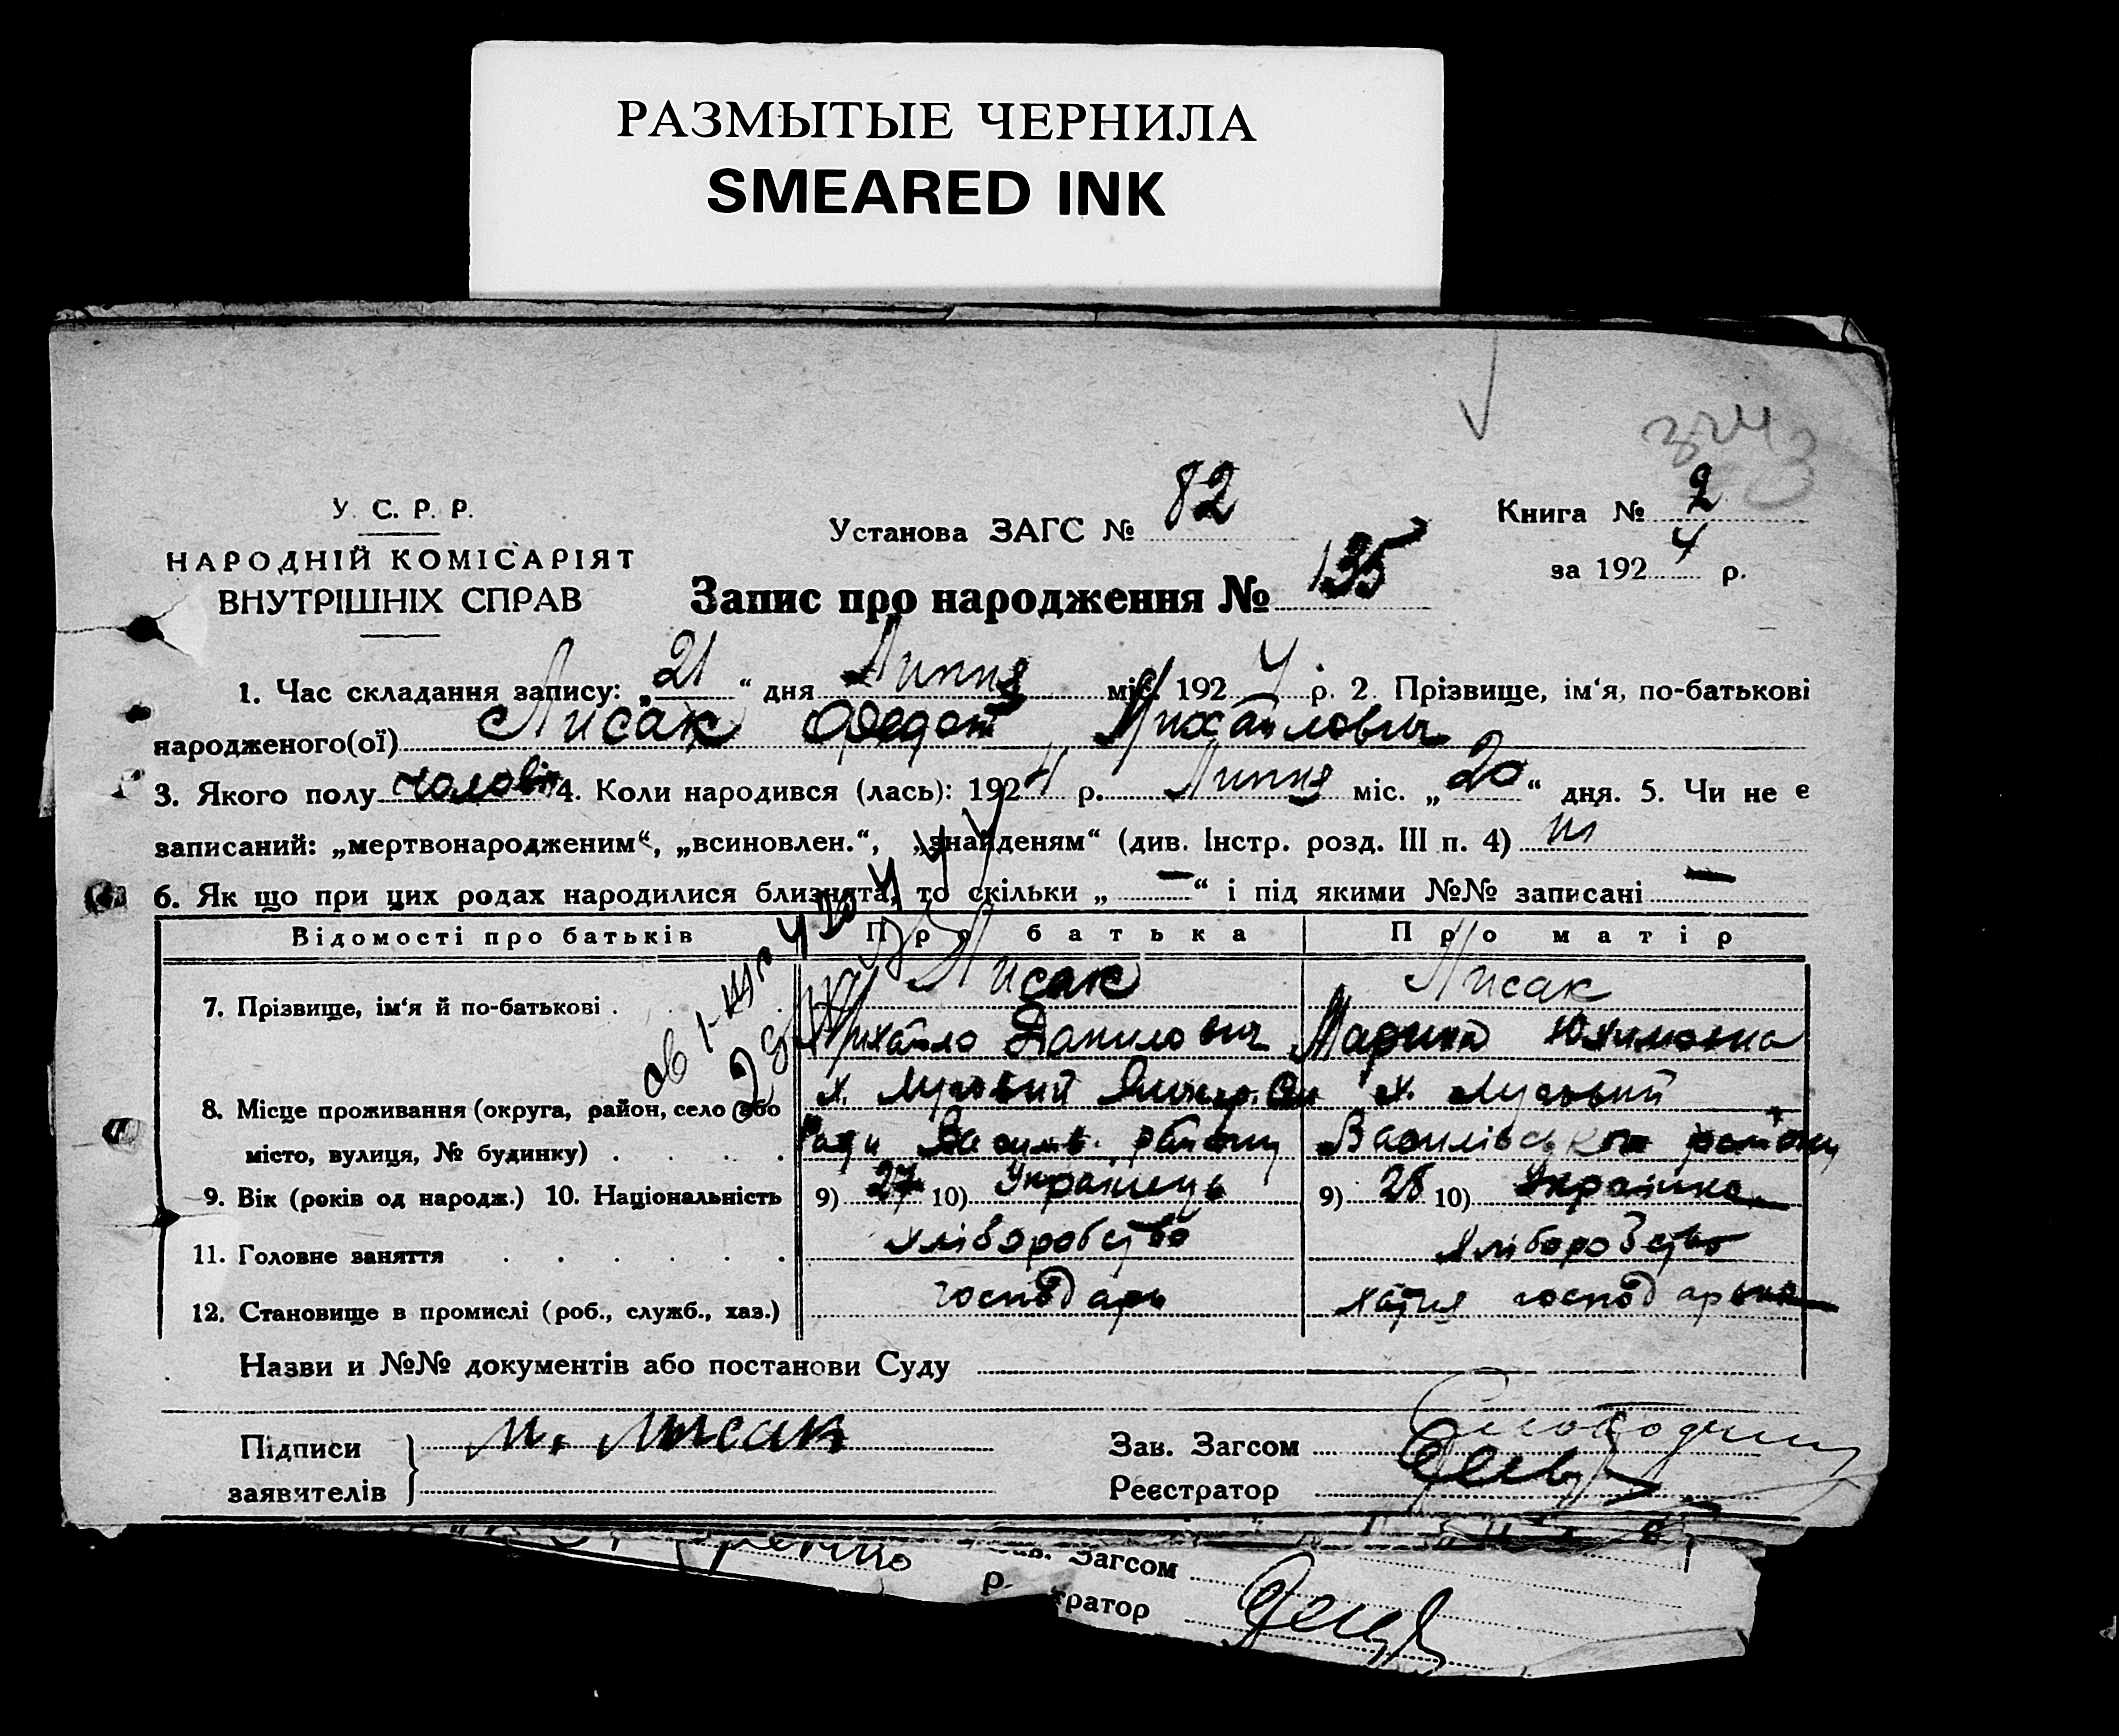 РАЗМЫТЫЕ ЧЕРНИЛА
SMEARED INK
У. С. Р. Р.
НАРОДНІЙ КОМІСАРІЯТ
ВНУТРІШНІХ СПРАВ
Установа ЗАГС № 82
Книга № 2
за 1924 р.
Запис про народження № 135
1. Час складання запису: „21“ дня Липня міс. 1924 р. 2. Прізвище, ім‘я, по-батькові
народженого(ої) Лисак Федот Михайлович
3. Якого полу чоловіч 4. Коли народився (лась): 1924 р. Липня міс. „20“ дня. 5. Чи не є
записаний: „мертвонародженим“, „всиновлен.“, „знайденям“ (див. Інстр. розд. III п. 4) ні
6. Як що при цих родах народилися близнята, то скільки „ — “ і під якими №№ записані —
Відомості про батьків Про батька Про матір
7. Прізвище, ім‘я й по-батькові . Лисак Лисак
Михайло Данилович Марина Юхимовна
8. Місце проживання (округа, район, село або х. Луговий х. Луговий
місто, вулиця, № будинку) . . . . Ради Василів. району Василівського району
9. Вік (років од народж.) 10. Національність 9) 27 10) Українець 9) 28 10) Українка
11. Головне заняття . . . . . . хліборобство хліборобство
12. Становище в промислі (роб., служб., хаз.) господарь хатня господарька
Назви и №№ документів або постанови Суду
Підписи
заявителів
М. Лисак
Зав. Загсом
Реєстратор
Загсом
р.
тратор